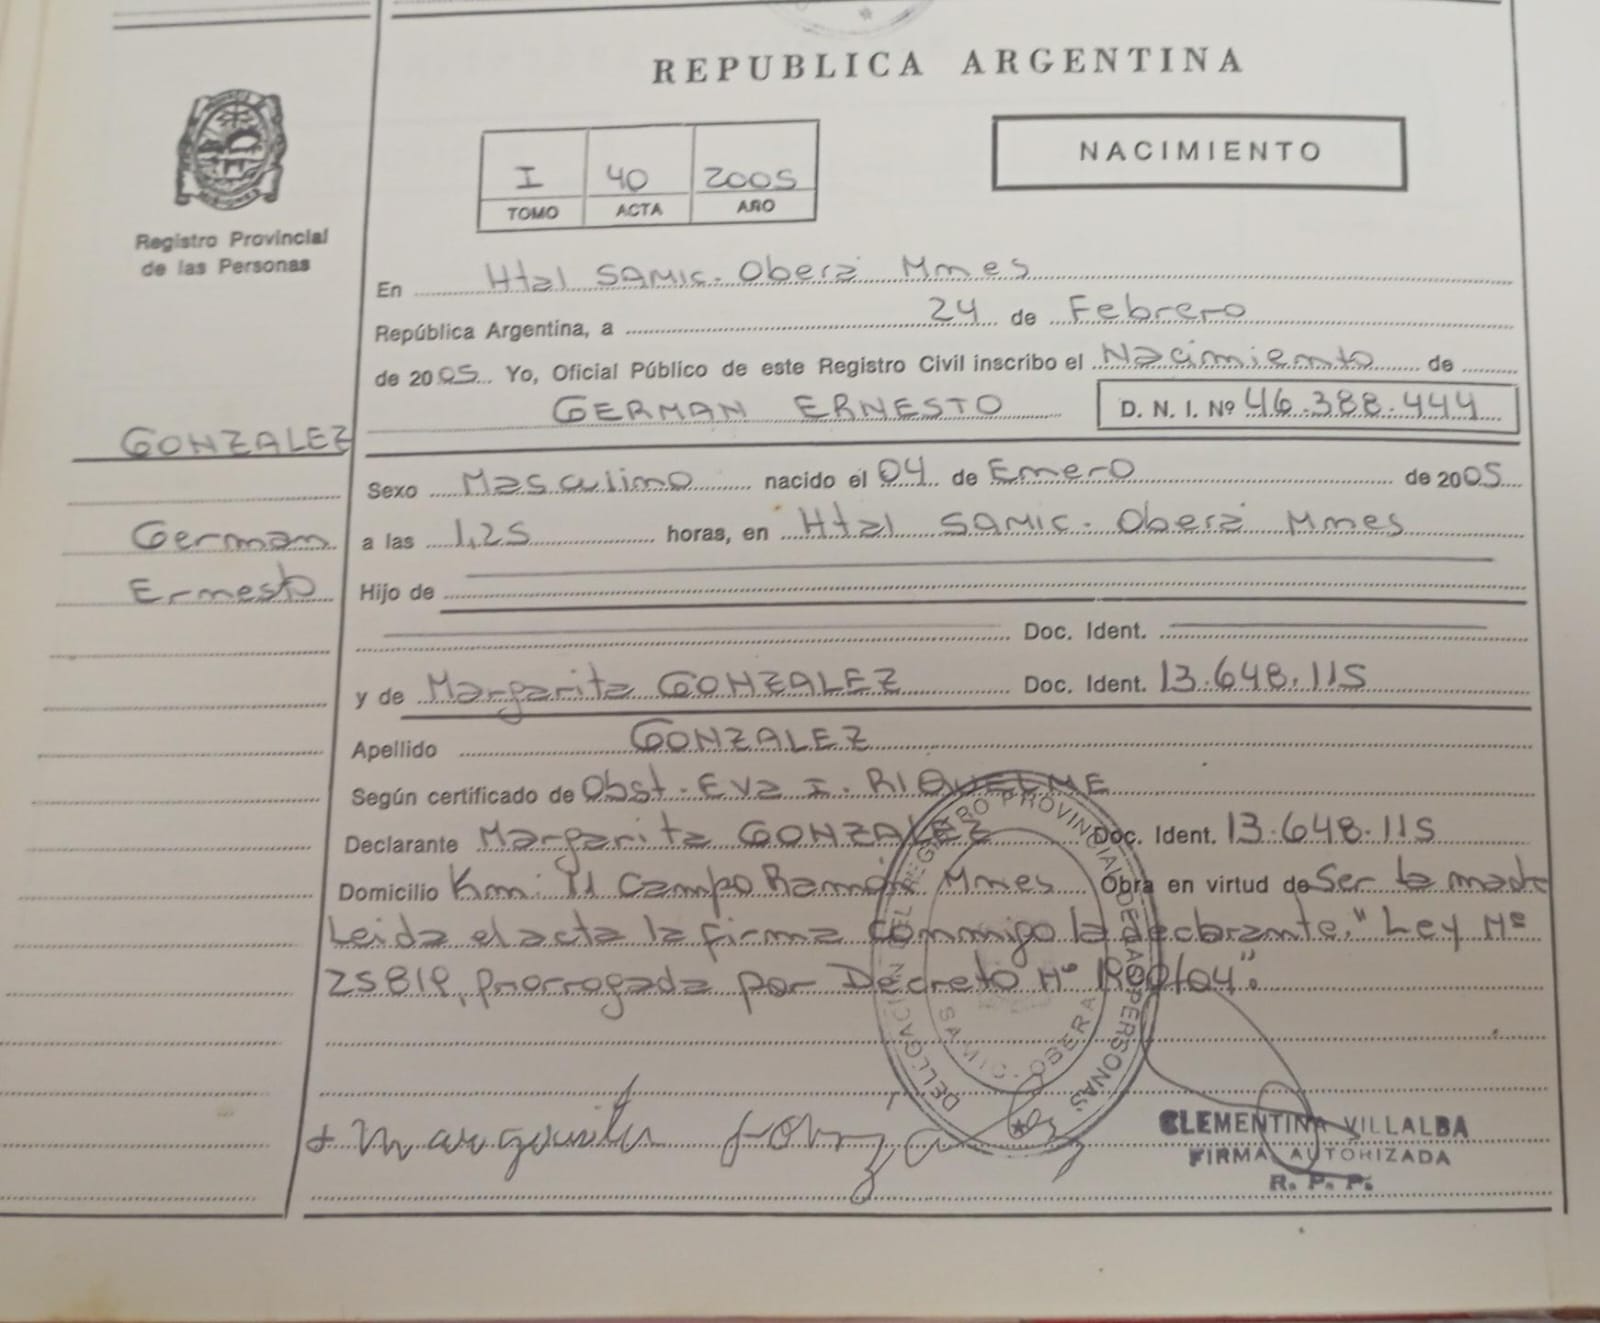 REPUBLICA ARGENTINA
NACIMIENTO
I 40 2005
TOMO ACTA AÑO
Registro Provincial
de las Personas
En Htal SAMIC. Oberá Mnes
República Argentina, a 24 de Febrero
de 2005 Yo, Oficial Público de este Registro Civil inscribo el Nacimiento de
GERMAN ERNESTO D. N. I. Nº 46.388.444
GONZALEZ
German
Ernesto
Sexo Masculino nacido el 04 de Enero de 2005
a las 1,25 horas, en Htal SAMIC. Oberá Mnes
Hijo de
Doc. Ident.
y de Margarita GONZALEZ Doc. Ident. 13.648.115
Apellido GONZALEZ
Según certificado de Obst. Eva I. RIQUELME
Declarante Margarita GONZALEZ Doc. Ident. 13.648.115
Domicilio Km. 11 Campo Ramón Mnes Obra en virtud de Ser la madre
Leida el acta la firma conmigo la declarante. "Ley Nº
25819, prorrogada por Decreto Nº
DELEGACIÓN DEL REGISTRO PROVINCIAL DE LAS PERSONAS
OBERA
Margarita Gonzalez
CLEMENTINA VILLALBA
FIRMA AUTORIZADA
R. P. P.